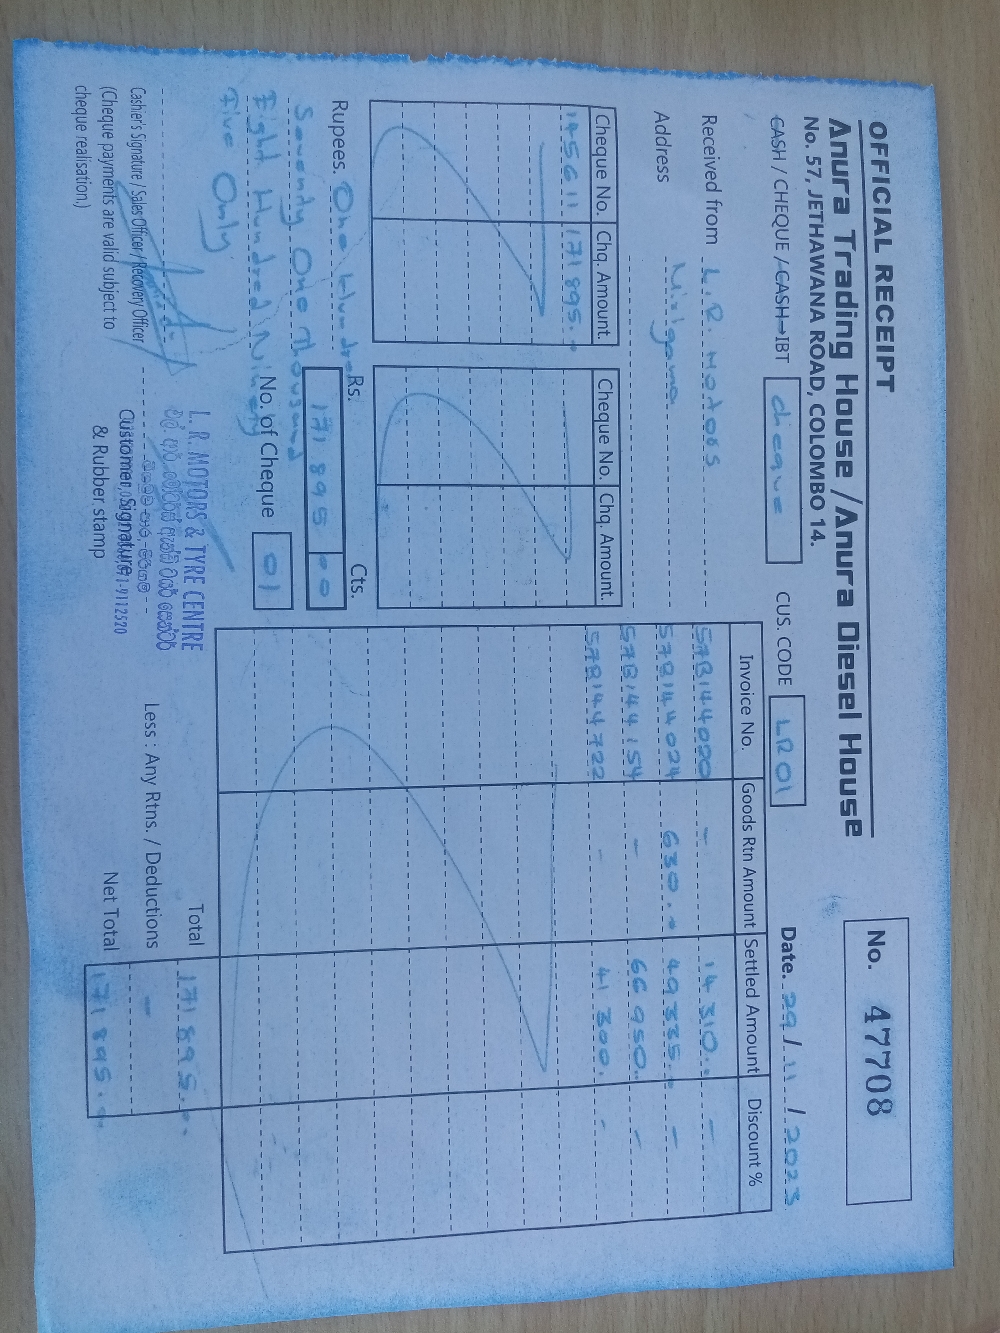 OFFICIAL RECEIPT
Anura Trading House / Anura Diesel House
No. 57, JETHAWANA ROAD, COLOMBO 14.
No. 47708
CASH / CHEQUE / CASH-IBT cheque
CUS. CODE LR01
Date. 29/11/2023
Received from L.R. Motors
Address Mirigama
Cheque No. Chq. Amount.
145611 171 895.-
Cheque No. Chq. Amount.
Invoice No. Goods Rtn Amount Settled Amount Discount %
57B144020 - 14 310.- -
57B144024 630.- 49 335.- -
57B144154 - 66 950.- -
57B144722 - 41 300.- -
Rupees. One Hundred
Seventy One Thousand
Eight Hundred Ninety
Five Only
Rs. Cts.
171 895 00
No. of Cheque 01
Total 171 895.-
Less : Any Rtns. / Deductions -
Net Total 171 895.-
Cashier's Signature / Sales Officer / Recovery Officer
(Cheque payments are valid subject to
cheque realisation.)
L. R. MOTORS & TYRE CENTRE
Customer Signature
& Rubber stamp